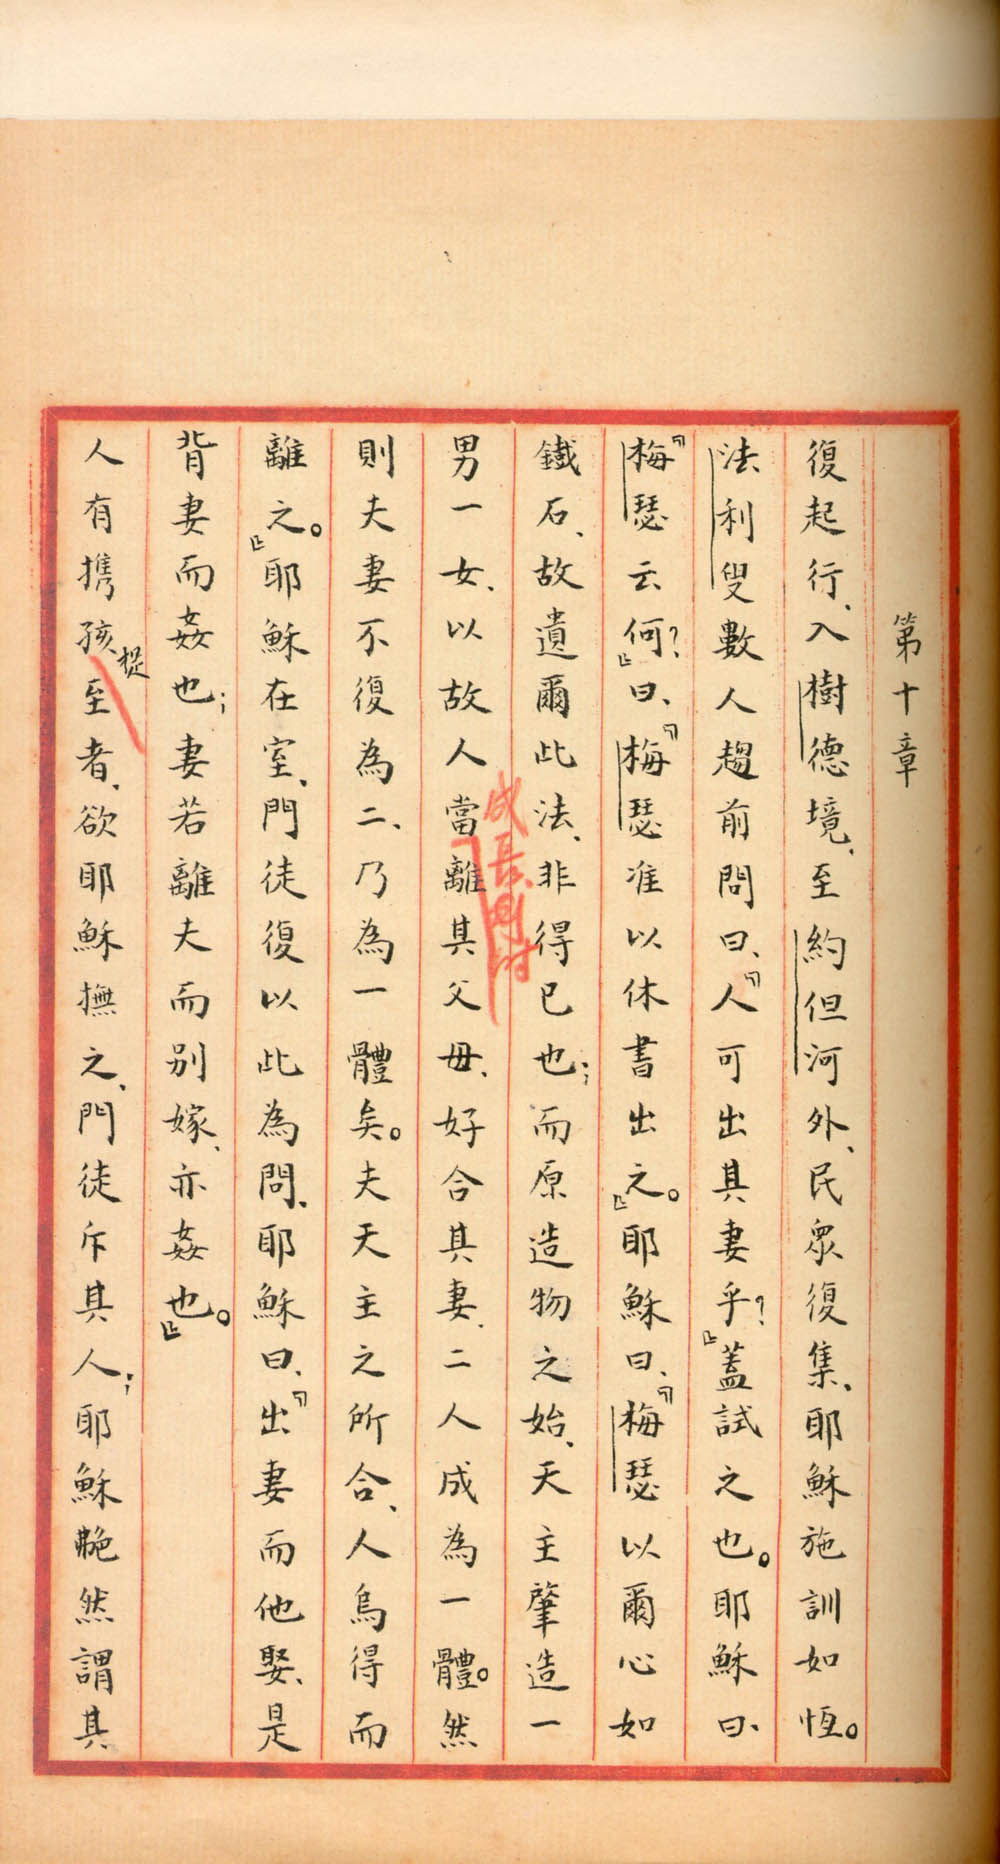 第十章
復起行、入樹德境、至約但河外、民眾復集、耶穌施訓如恆。
法利叟數人趨前問曰、『人可出其妻乎?』蓋試之也。耶穌曰、
『梅瑟云何?』曰、『梅瑟准以休書出之。』耶穌曰、『梅瑟以爾心如
鐵石、故遺爾此法、非得已也;而原造物之始、天主肇造一
男一女、以故人當離其父母、好合其妻、二人成為一體。然
成長時
則夫妻不復為二、乃為一體矣。夫天主之所合、人烏得而
離之。』耶穌在室、門徒復以此為問、耶穌曰、『出妻而他娶、是
背妻而姦也;妻若離夫而別嫁、亦姦也。』
人有攜孩提至者、欲耶穌撫之、門徒斥其人;耶穌艴然謂其